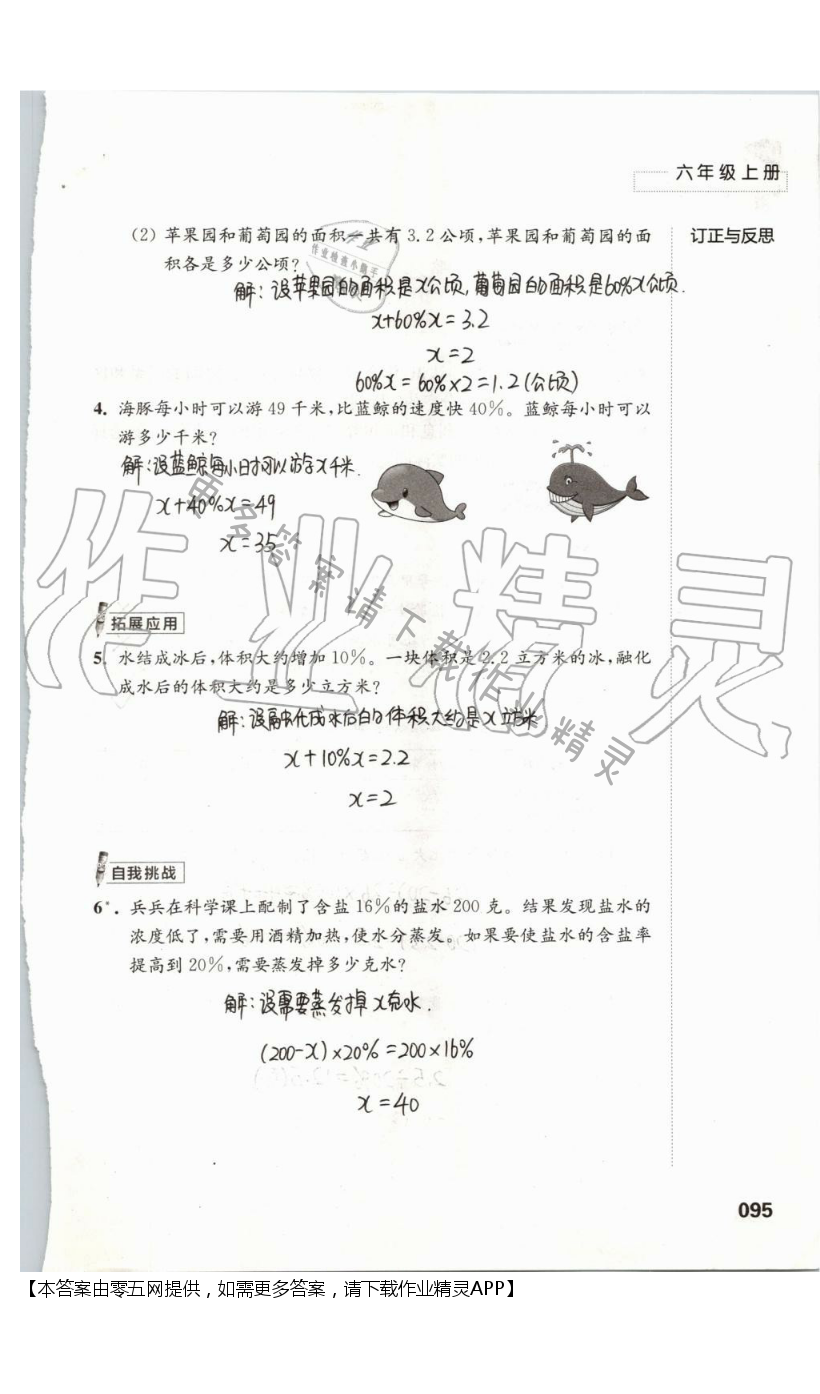 六年级上册
订正与反思
(2) 苹果园和葡萄园的面积一共有3.2公顷,苹果园和葡萄园的面
积各是多少公顷?
解:设苹果园的面积是x公顷,葡萄园的面积是60%x公顷.
x+60%x=3.2
x=2
60%x=60%×2=1.2(公顷)
4. 海豚每小时可以游49千米,比蓝鲸的速度快40%。蓝鲸每小时可以
游多少千米?
解:设蓝鲸每小时可以游x千米.
x+40%x=49
x=35
拓展应用
5. 水结成冰后,体积大约增加10%。一块体积是2.2立方米的冰,融化
成水后的体积大约是多少立方米?
解:设融化成水后的体积大约是x立方米
x+10%x=2.2
x=2
自我挑战
6*. 兵兵在科学课上配制了含盐16%的盐水200克。结果发现盐水的
浓度低了,需要用酒精加热,使水分蒸发。如果要使盐水的含盐率
提高到20%,需要蒸发掉多少克水?
解:设需要蒸发掉x克水.
(200-x)×20%=200×16%
x=40
095
作业精灵
更多答案请下载作业精灵
【本答案由零五网提供，如需更多答案，请下载作业精灵APP】